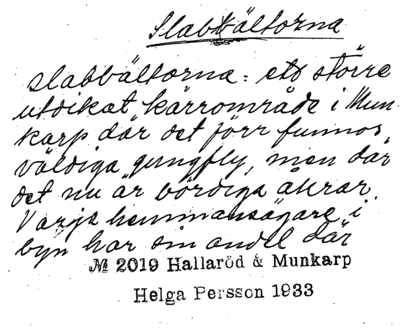 Slabbältorna
slabbältorna: ett större
utdikat kärrområde i Mun-
karp där det förr funnos
väldiga "gungfly", men där
det nu är bördiga åkrar.
Varje hemmansägare i
byn har sin andel där
№ 2019 Hallaröd & Munkarp
Helga Persson 1933